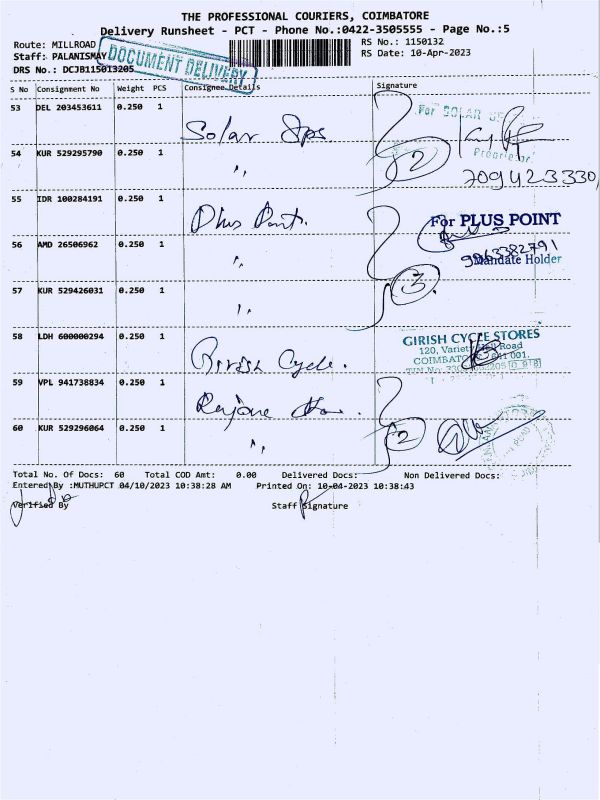 THE PROFESSIONAL COURIERS, COIMBATORE
Delivery Runsheet - PCT - Phone No.:0422-3505555 - Page No.:5
Route: MILLROAD
RS No.: 1150132
Staff: PALANISMAY
RS Date: 10-Apr-2023
DOCUMENT DELIVERY
DRS No.: DCJB115013205
S No Consignment No Weight PCS Consignee Details Signature
53 DEL 203453611 0.250 1 Solar Sps
For SOLAR
Proprietor
54 KUR 529295790 0.250 1 "
2
709423330
55 IDR 100284191 0.250 1 Plus Point.
For PLUS POINT
56 AMD 26506962 0.250 1 "
9963382791
Mandate Holder
57 KUR 529426031 0.250 1 "
3
58 LDH 600000294 0.250 1 Girish Cycle.
GIRISH CYCLE STORES
120, Variety Hall Road
COIMBATORE 641 001.
59 VPL 941738834 0.250 1
60 KUR 529296064 0.250 1 "
2
Total No. Of Docs: 60 Total COD Amt: 0.00 Delivered Docs: Non Delivered Docs:
Entered By :MUTHUPCT 04/10/2023 10:38:28 AM Printed On: 10-04-2023 10:38:43
Verified By Staff Signature